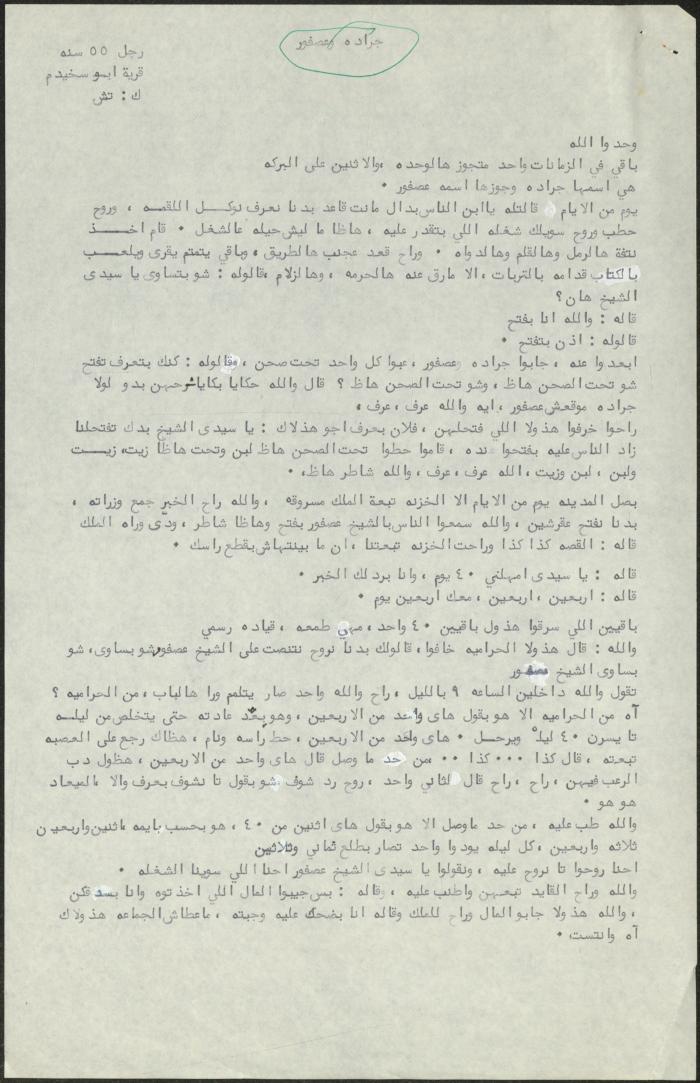 جراده وعصفور
رجل ٥٥ سنه
قرية ابو سخيدم
ك : تش
وحدوا الله
باقي في الزمانات واحد متجوز هالوحده ،والاثنين على البركه
هي اسمها جراده وجوزها اسمه عصفور ٠
يوم من الايام قالتله ياابن الناس بدال مانت قاعد بدنا نعرف نوكل اللقمه ، وروح
حطب وروح سويلك شغله اللي بتقدر عليه ، هاظا ما ليش حيله عالشغل ٠ قام اخذ
نتفة هالرمل وهالقلم وهالدواه ٠ وراح قعد عجنب هالطريق ، وباقي يتمتم يقرى ويلعب
بالكتاب قدامه بالتربات ، الا مارق عنه هالحرمه ، وهالزلام ،قالوله : شو بتساوى يا سيدى
الشيخ هان ؟
قاله : والله انا بفتح
قالوله : اذن بتفتح ٠
ابعدوا عنه ، جابوا جراده وعصفور ، عبوا كل واحد تحت صحن ، وقالوله : كنك بتعرف تفتح
شو تحت الصحن هاظ ، وشو تحت الصحن هاظ ؟ قال والله حكايا بكايا شرحهن بدو لولا
جراده موقعش عصفور ، ايه والله عرف ، عرف ،
راحوا خرفوا هذولا اللي فتحلهن ، فلان بعرف اجو هذلاك : يا سيدى الشيخ بدك تفتحلنا
زاد الناس عليه بفتحوا عنده ، قاموا حطوا تحت الصحن هاظ لبن وتحت هاظا زيت، زيت
ولبن ، لبن وزيت ، الله عرف ، عرف ، والله شاطر هاظ،٠
بصل المدينه يوم من الايام الا الخزنه تبعة الملك مسروقه ، والله راح الخبر جمع وزراته ،
بدنا نفتح عقرشين ، والله سمعوا الناس بالشيخ عصفور بفتح وهاظا شاطر ، ودى وراه الملك
قاله : القصه كذا كذا وراحت الخزنه تبعتنا ، ان ما بينتهاش بقطع راسك ٠
قاله : يا سيدى امهلني ٤٠ يوم ، وانا بردلك الخبر ٠
قاله : اربعين ، اربعين ، معك اربعين يوم ٠
باقيين اللي سرقوا هذول باقيين ٤٠ واحد ، مهي طمعه ، قياده رسمي
والله : قال هذولا الحراميه خافوا ، قالولك بدنا نروح نتنصت على الشيخ عصفور شو بساوى، شو
بساوى الشيخ عصفور
تقول والله داخلين الساعه ٩ بالليل ، راح والله واحد صار يتلمم ورا هالباب ، من الحراميه ؟
آه من الحراميه الا هو بقول هاى واحد من الاربعين ، وهو بعد عادته حتى يتخلص من ليله
تا يسرن ٤٠ ليله ويرحل ٠ هاى واحد من الاربعين ، حط راسه ونام ، هظاك رجع على العصبه
تبعته ، قال كذا ٠٠٠ كذا ٠٠ ،من حد ما وصل قال هاى واحد من الاربعين ، هظول دب
الرعب فيهن ، راح ، راح قال لثاني واحد ، روح رد شوف شو بقول تا نشوف بعرف والا ، الميعاد
هو هو ٠
والله طب عليه ، من حد ماوصل الا هو بقول هاى اثنين من ٤٠ ، هو بحسب بايمه ،اثنين واربعين
ثلاثه واربعين ، كل ليله يودوا واحد تصار بطلع ثماني وثلاثين
احنا روحوا تا نروح عليه ، ونقولوا يا سيدى الشيخ عصفور احنا اللي سوينا الشغله ٠
والله وراح القايد تبعهن واطنب عليه ، وقاله : بس جيبوا المال اللي اخذتوه وانا بسدكن
، والله هذولا جابو المال وراح للملك وقاله انا بضحك عليه وجبته ، ماعطاش الجماعه هذولاك
آه وانتست ٠